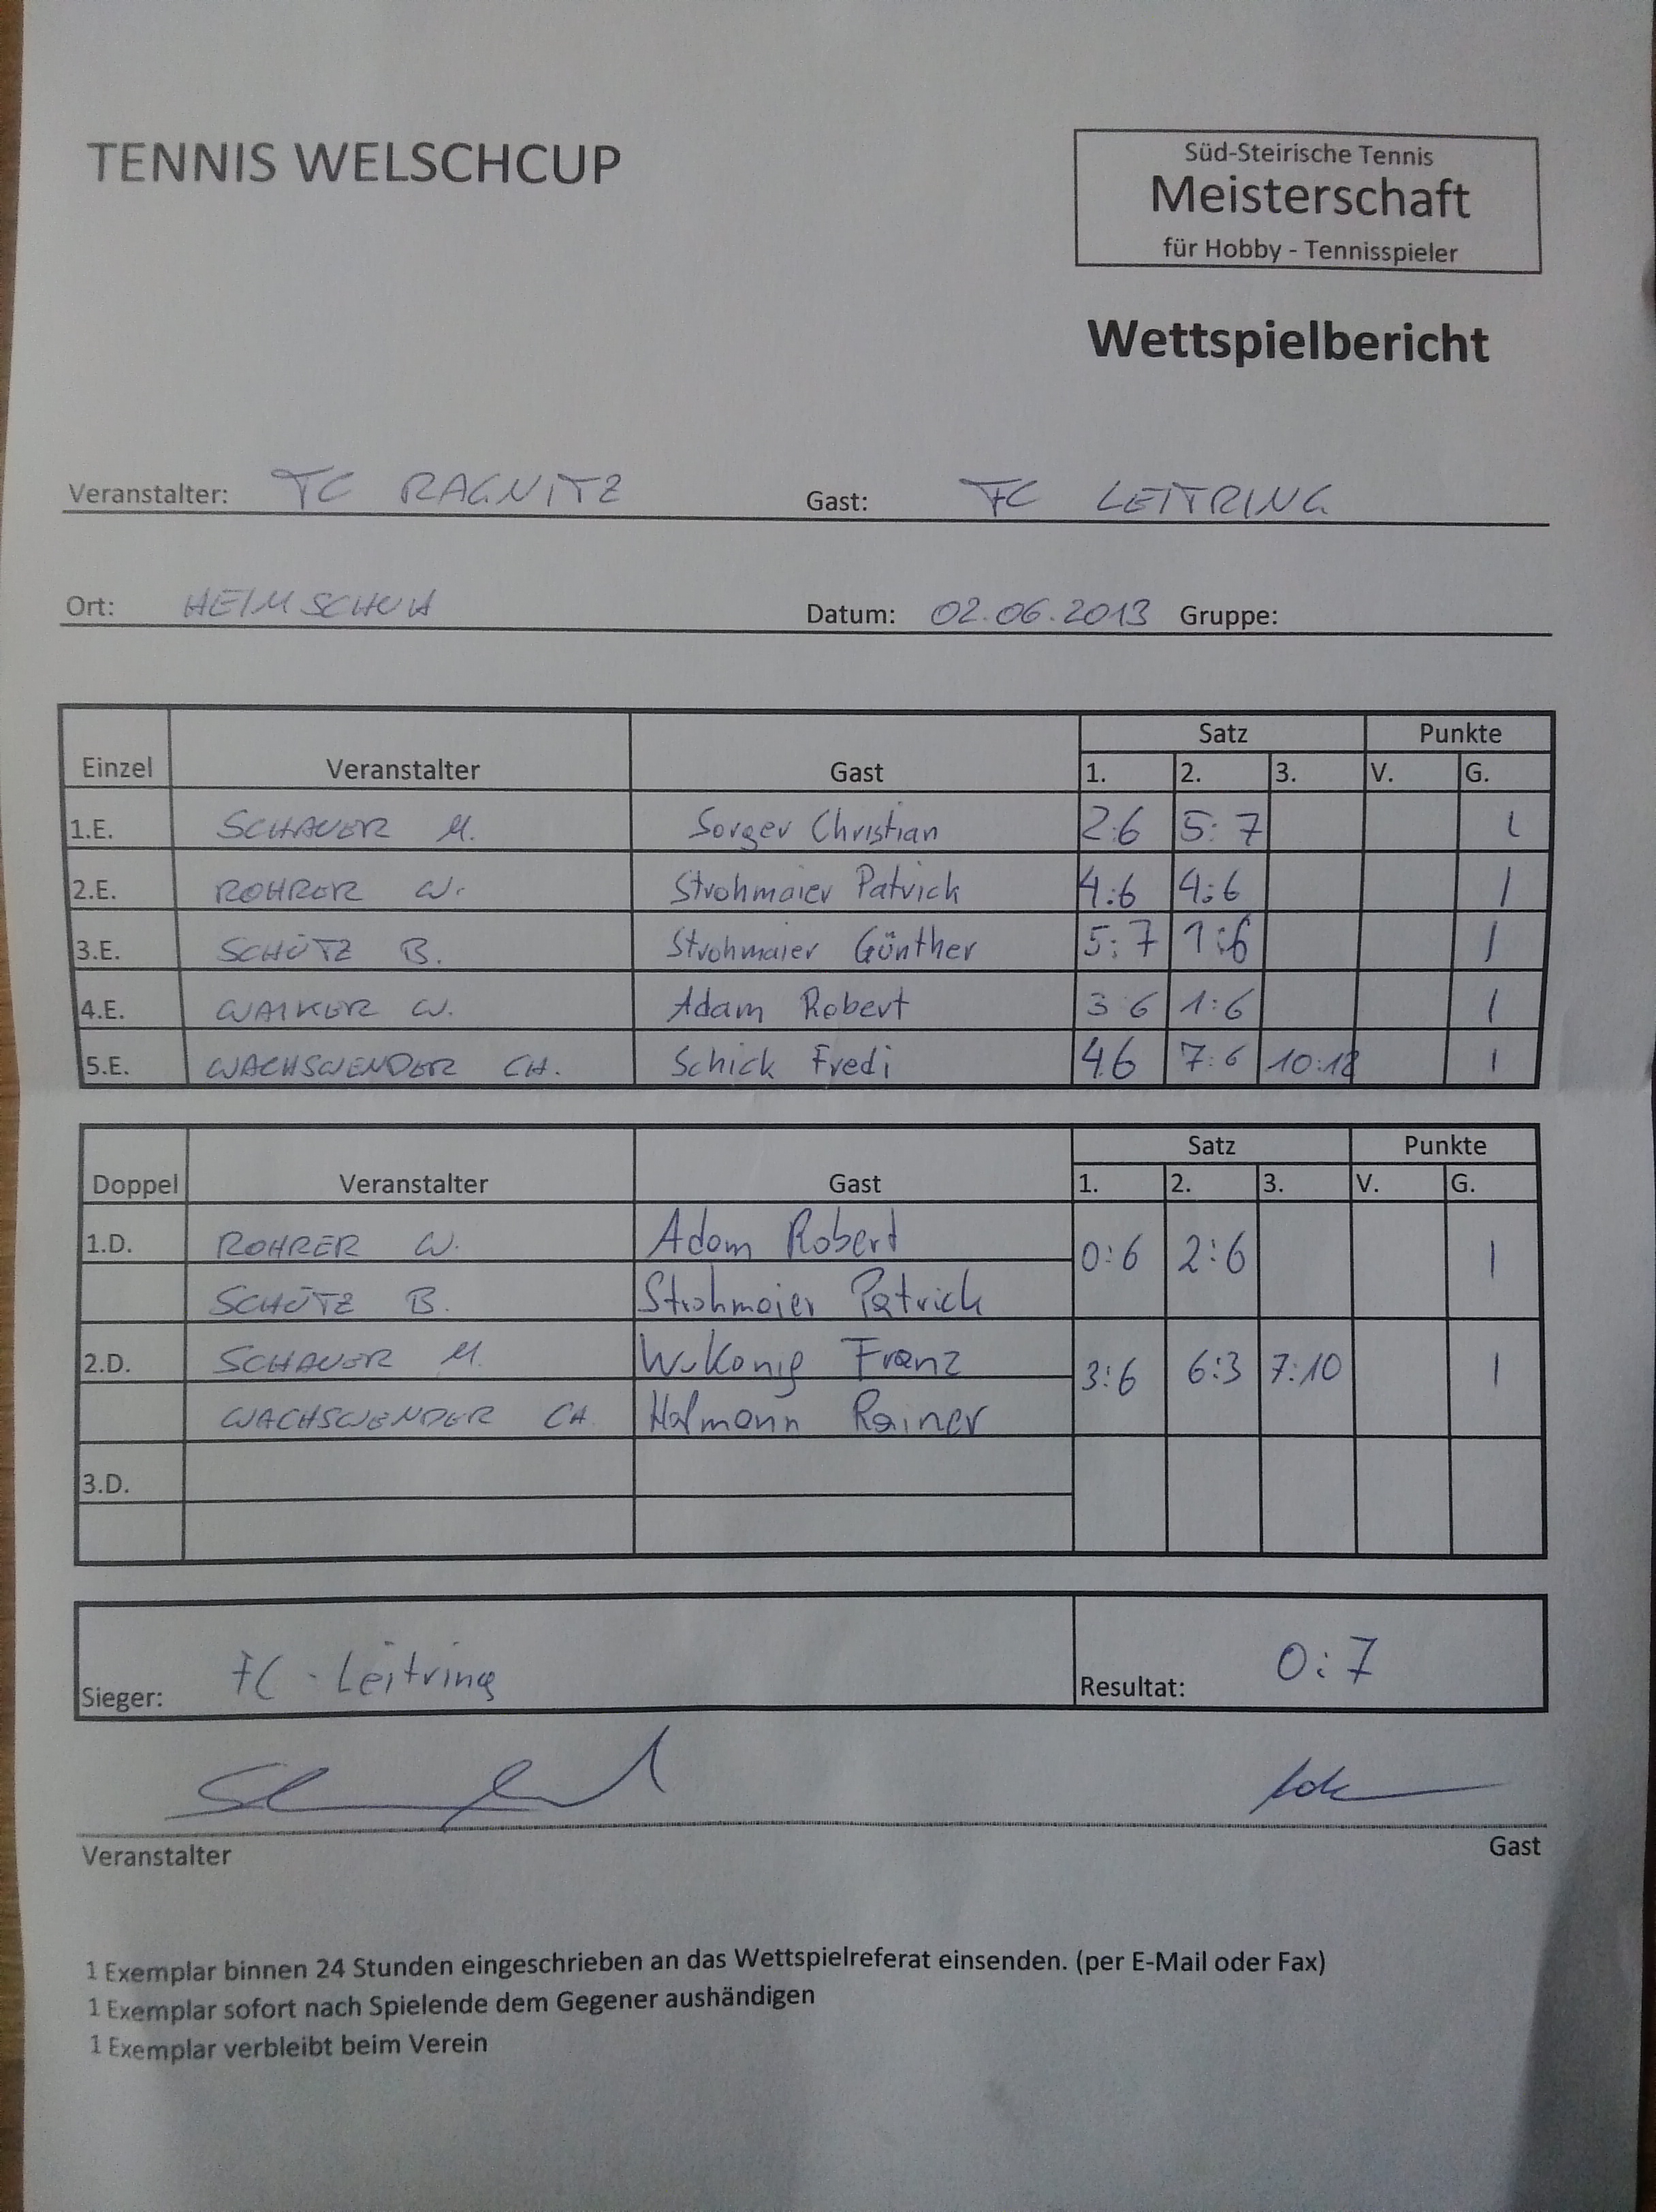 TENNIS WELSCHCUP
Süd-Steirische Tennis
Meisterschaft
für Hobby - Tennisspieler
Wettspielbericht
Veranstalter: TC RAGNITZ Gast: FC LEITRING
Ort: HEIMSCHUH Datum: 02.06.2013 Gruppe:
Satz Punkte
Einzel Veranstalter Gast 1. 2. 3. V. G.
1.E. SCHAUER M. Sorger Christian 2:6 5:7 1
2.E. ROHRER W. Strohmaier Patrick 4:6 4:6 1
3.E. SCHÜTZ B. Strohmaier Günther 5:7 1:6 1
4.E. WALKER W. Adam Robert 3 6 1:6 1
5.E. WACHSWENDER CH. Schick Fredi 46 7:6 10:12 1
Satz Punkte
Doppel Veranstalter Gast 1. 2. 3. V. G.
1.D. ROHRER W. Adam Robert 0:6 2:6 1
SCHÜTZ B. Strohmaier Patrick
2.D. SCHAUER M. Wukonig Franz 3:6 6:3 7:10 1
WACHSWENDER CH Rainer
3.D.
Sieger: FC - Leitring Resultat: 0:7
Veranstalter Gast
1 Exemplar binnen 24 Stunden eingeschrieben an das Wettspielreferat einsenden. (per E-Mail oder Fax)
1 Exemplar sofort nach Spielende dem Gegener aushändigen
1 Exemplar verbleibt beim Verein